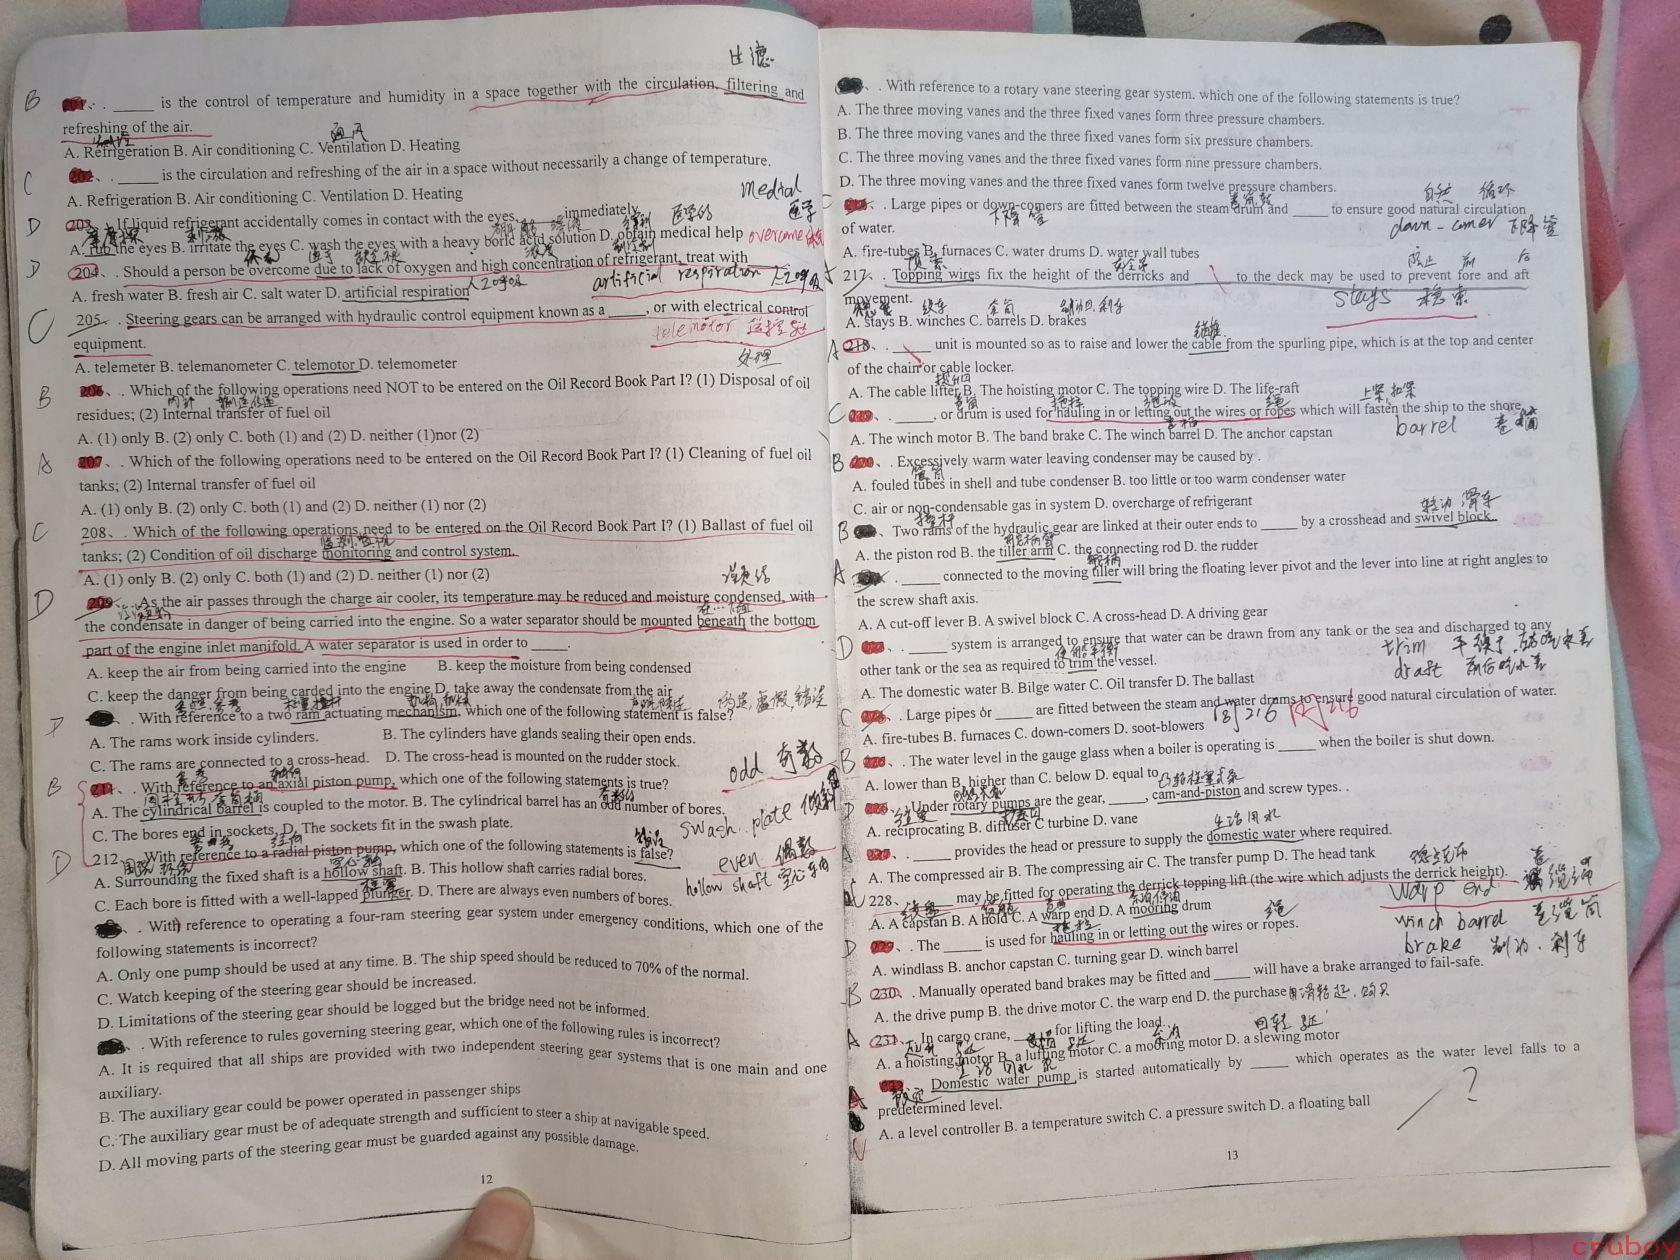 B 201、. _____ is the control of temperature and humidity in a space together with the circulation, filtering and
refreshing of the air.
制冷 通风
A. Refrigeration B. Air conditioning C. Ventilation D. Heating
C 202、. _____ is the circulation and refreshing of the air in a space without necessarily a change of temperature.
A. Refrigeration B. Air conditioning C. Ventilation D. Heating
medial
D 203、. If liquid refrigerant accidentally comes in contact with the eyes, _____ immediately. 医学的 医学
A. rub the eyes B. irritate the eyes C. wash the eyes with a heavy boric acid solution D. obtain medical help overcome
D 204、. Should a person be overcome due to lack of oxygen and high concentration of refrigerant, treat with
A. fresh water B. fresh air C. salt water D. artificial respiration 人工呼吸 artificial respiration 人工呼吸
C 205、. Steering gears can be arranged with hydraulic control equipment known as a _____, or with electrical control
equipment. telemotor
A. telemeter B. telemanometer C. telemotor D. telemometer 处理
B 206、. Which of the following operations need NOT to be entered on the Oil Record Book Part I? (1) Disposal of oil
residues; (2) Internal transfer of fuel oil
A. (1) only B. (2) only C. both (1) and (2) D. neither (1)nor (2)
A 207、. Which of the following operations need to be entered on the Oil Record Book Part I? (1) Cleaning of fuel oil
tanks; (2) Internal transfer of fuel oil
A. (1) only B. (2) only C. both (1) and (2) D. neither (1) nor (2)
C 208、. Which of the following operations need to be entered on the Oil Record Book Part I? (1) Ballast of fuel oil
tanks; (2) Condition of oil discharge monitoring and control system.
A. (1) only B. (2) only C. both (1) and (2) D. neither (1) nor (2)
D 209、. As the air passes through the charge air cooler, its temperature may be reduced and moisture condensed, with
the condensate in danger of being carried into the engine. So a water separator should be mounted beneath the bottom
part of the engine inlet manifold. A water separator is used in order to _____.
A. keep the air from being carried into the engine B. keep the moisture from being condensed
C. keep the danger from being carded into the engine D. take away the condensate from the air
. With reference to a two ram actuating mechanism, which one of the following statement is false?
A. The rams work inside cylinders. B. The cylinders have glands sealing their open ends.
C. The rams are connected to a cross-head. D. The cross-head is mounted on the rudder stock.
odd 奇数
B 211、. With reference to an axial piston pump, which one of the following statements is true?
A. The cylindrical barrel is coupled to the motor. B. The cylindrical barrel has an odd number of bores.
C. The bores end in sockets. D. The sockets fit in the swash plate. swash plate
D 212、. With reference to a radial piston pump, which one of the following statements is false? even 偶数
A. Surrounding the fixed shaft is a hollow shaft. B. This hollow shaft carries radial bores. hollow shaft 空心轴
C. Each bore is fitted with a well-lapped plunger. D. There are always even numbers of bores.
. With reference to operating a four-ram steering gear system under emergency conditions, which one of the
following statements is incorrect?
A. Only one pump should be used at any time. B. The ship speed should be reduced to 70% of the normal.
C. Watch keeping of the steering gear should be increased.
D. Limitations of the steering gear should be logged but the bridge need not be informed.
. With reference to rules governing steering gear, which one of the following rules is incorrect?
A. It is required that all ships are provided with two independent steering gear systems that is one main and one
auxiliary.
B. The auxiliary gear could be power operated in passenger ships
C. The auxiliary gear must be of adequate strength and sufficient to steer a ship at navigable speed.
D. All moving parts of the steering gear must be guarded against any possible damage.
12
. With reference to a rotary vane steering gear system. which one of the following statements is true?
A. The three moving vanes and the three fixed vanes form three pressure chambers.
B. The three moving vanes and the three fixed vanes form six pressure chambers.
C. The three moving vanes and the three fixed vanes form nine pressure chambers.
D. The three moving vanes and the three fixed vanes form twelve pressure chambers.
自然 循环
. Large pipes or down-comers are fitted between the steam drum and _____ to ensure good natural circulation
of water. 下降管 down-comer 下降管
A. fire-tubes B. furnaces C. water drums D. water wall tubes
217、. Topping wires fix the height of the derricks and _____ to the deck may be used to prevent fore and aft
movement. stays 稳索
A. stays B. winches C. barrels D. brakes
A 218、. _____ unit is mounted so as to raise and lower the cable from the spurling pipe, which is at the top and center
of the chain or cable locker.
A. The cable lifter B. The hoisting motor C. The topping wire D. The life-raft
C 219、. _____, or drum is used for hauling in or letting out the wires or ropes which will fasten the ship to the shore.
A. The winch motor B. The band brake C. The winch barrel D. The anchor capstan barrel
B 220、. Excessively warm water leaving condenser may be caused by .
A. fouled tubes in shell and tube condenser B. too little or too warm condenser water
C. air or non-condensable gas in system D. overcharge of refrigerant
B 、 Two rams of the hydraulic gear are linked at their outer ends to _____ by a crosshead and swivel block.
A. the piston rod B. the tiller arm C. the connecting rod D. the rudder
A . _____ connected to the moving tiller will bring the floating lever pivot and the lever into line at right angles to
the screw shaft axis.
A. A cut-off lever B. A swivel block C. A cross-head D. A driving gear
D . _____ system is arranged to ensure that water can be drawn from any tank or the sea and discharged to any
other tank or the sea as required to trim the vessel. trim
A. The domestic water B. Bilge water C. Oil transfer D. The ballast draft
C . Large pipes or _____ are fitted between the steam and water drums to ensure good natural circulation of water.
A. fire-tubes B. furnaces C. down-comers D. soot-blowers 同216 同216
B . The water level in the gauge glass when a boiler is operating is _____ when the boiler is shut down.
A. lower than B. higher than C. below D. equal to
D . Under rotary pumps are the gear, _____, cam-and-piston and screw types. .
A. reciprocating B. diffuser C turbine D. vane 生活用水
. _____ provides the head or pressure to supply the domestic water where required.
A. The compressed air B. The compressing air C. The transfer pump D. The head tank
228、. _____ may be fitted for operating the derrick topping lift (the wire which adjusts the derrick height).
A. A capstan B. A hold C. A warp end D. A mooring drum warp end
D 229、. The _____ is used for hauling in or letting out the wires or ropes. winch barrel
A. windlass B. anchor capstan C. turning gear D. winch barrel brake 制动、刹车
B 230、. Manually operated band brakes may be fitted and _____ will have a brake arranged to fail-safe.
A. the drive pump B. the drive motor C. the warp end D. the purchase
A 231、. In cargo crane, _____ for lifting the load.
A. a hoisting motor B. a luffing motor C. a mooring motor D. a slewing motor
A Domestic water pump is started automatically by _____ which operates as the water level falls to a
predetermined level. ?
A. a level controller B. a temperature switch C. a pressure switch D. a floating ball
13
cruboy